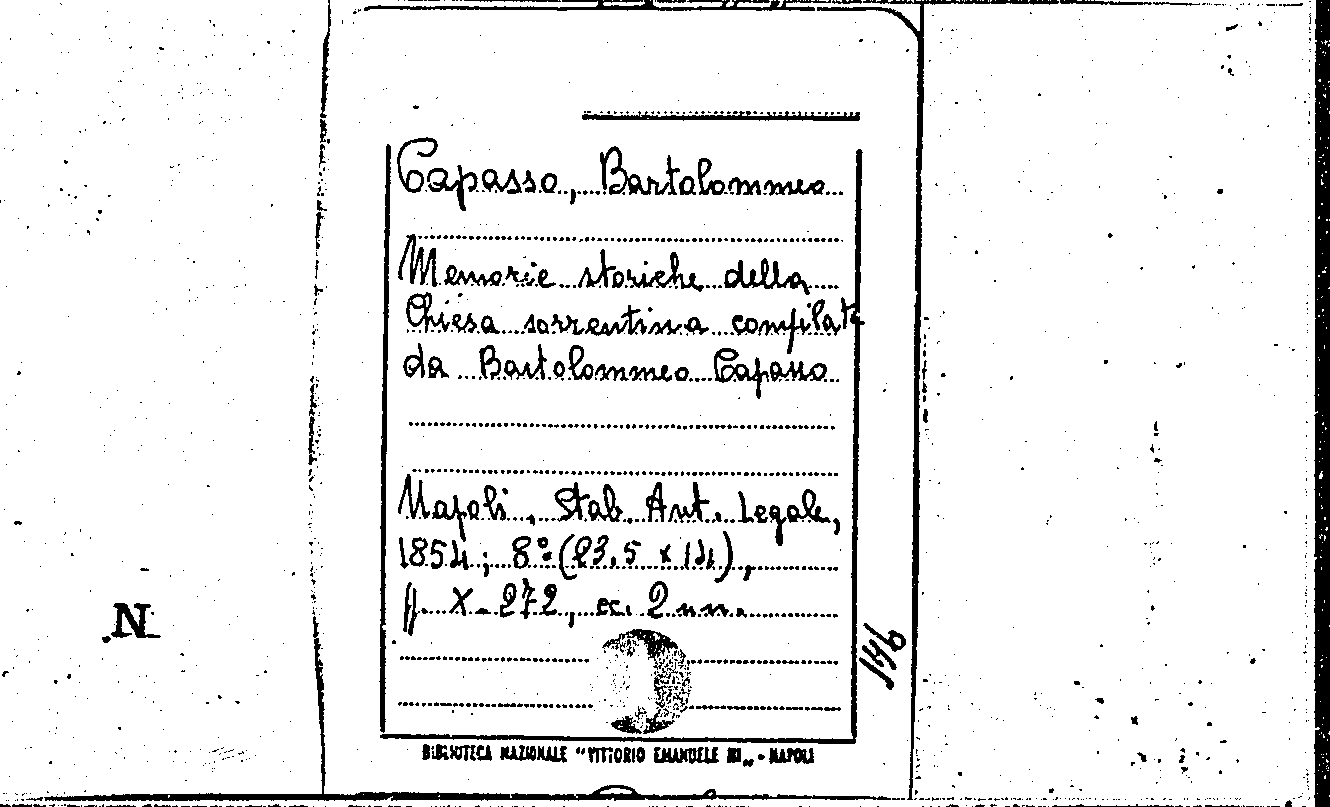 Capasso, Bartolommeo
Memorie storiche della
Chiesa sorrentina compilate
da Bartolommeo Capasso
Napoli, Stab. Ant. Legale,
1854; 8° (23,5 x 14),
pp. X-272, cc. 2 nn.
N
BIBLIOTECA NAZIONALE "VITTORIO EMANUELE III„ - NAPOLI